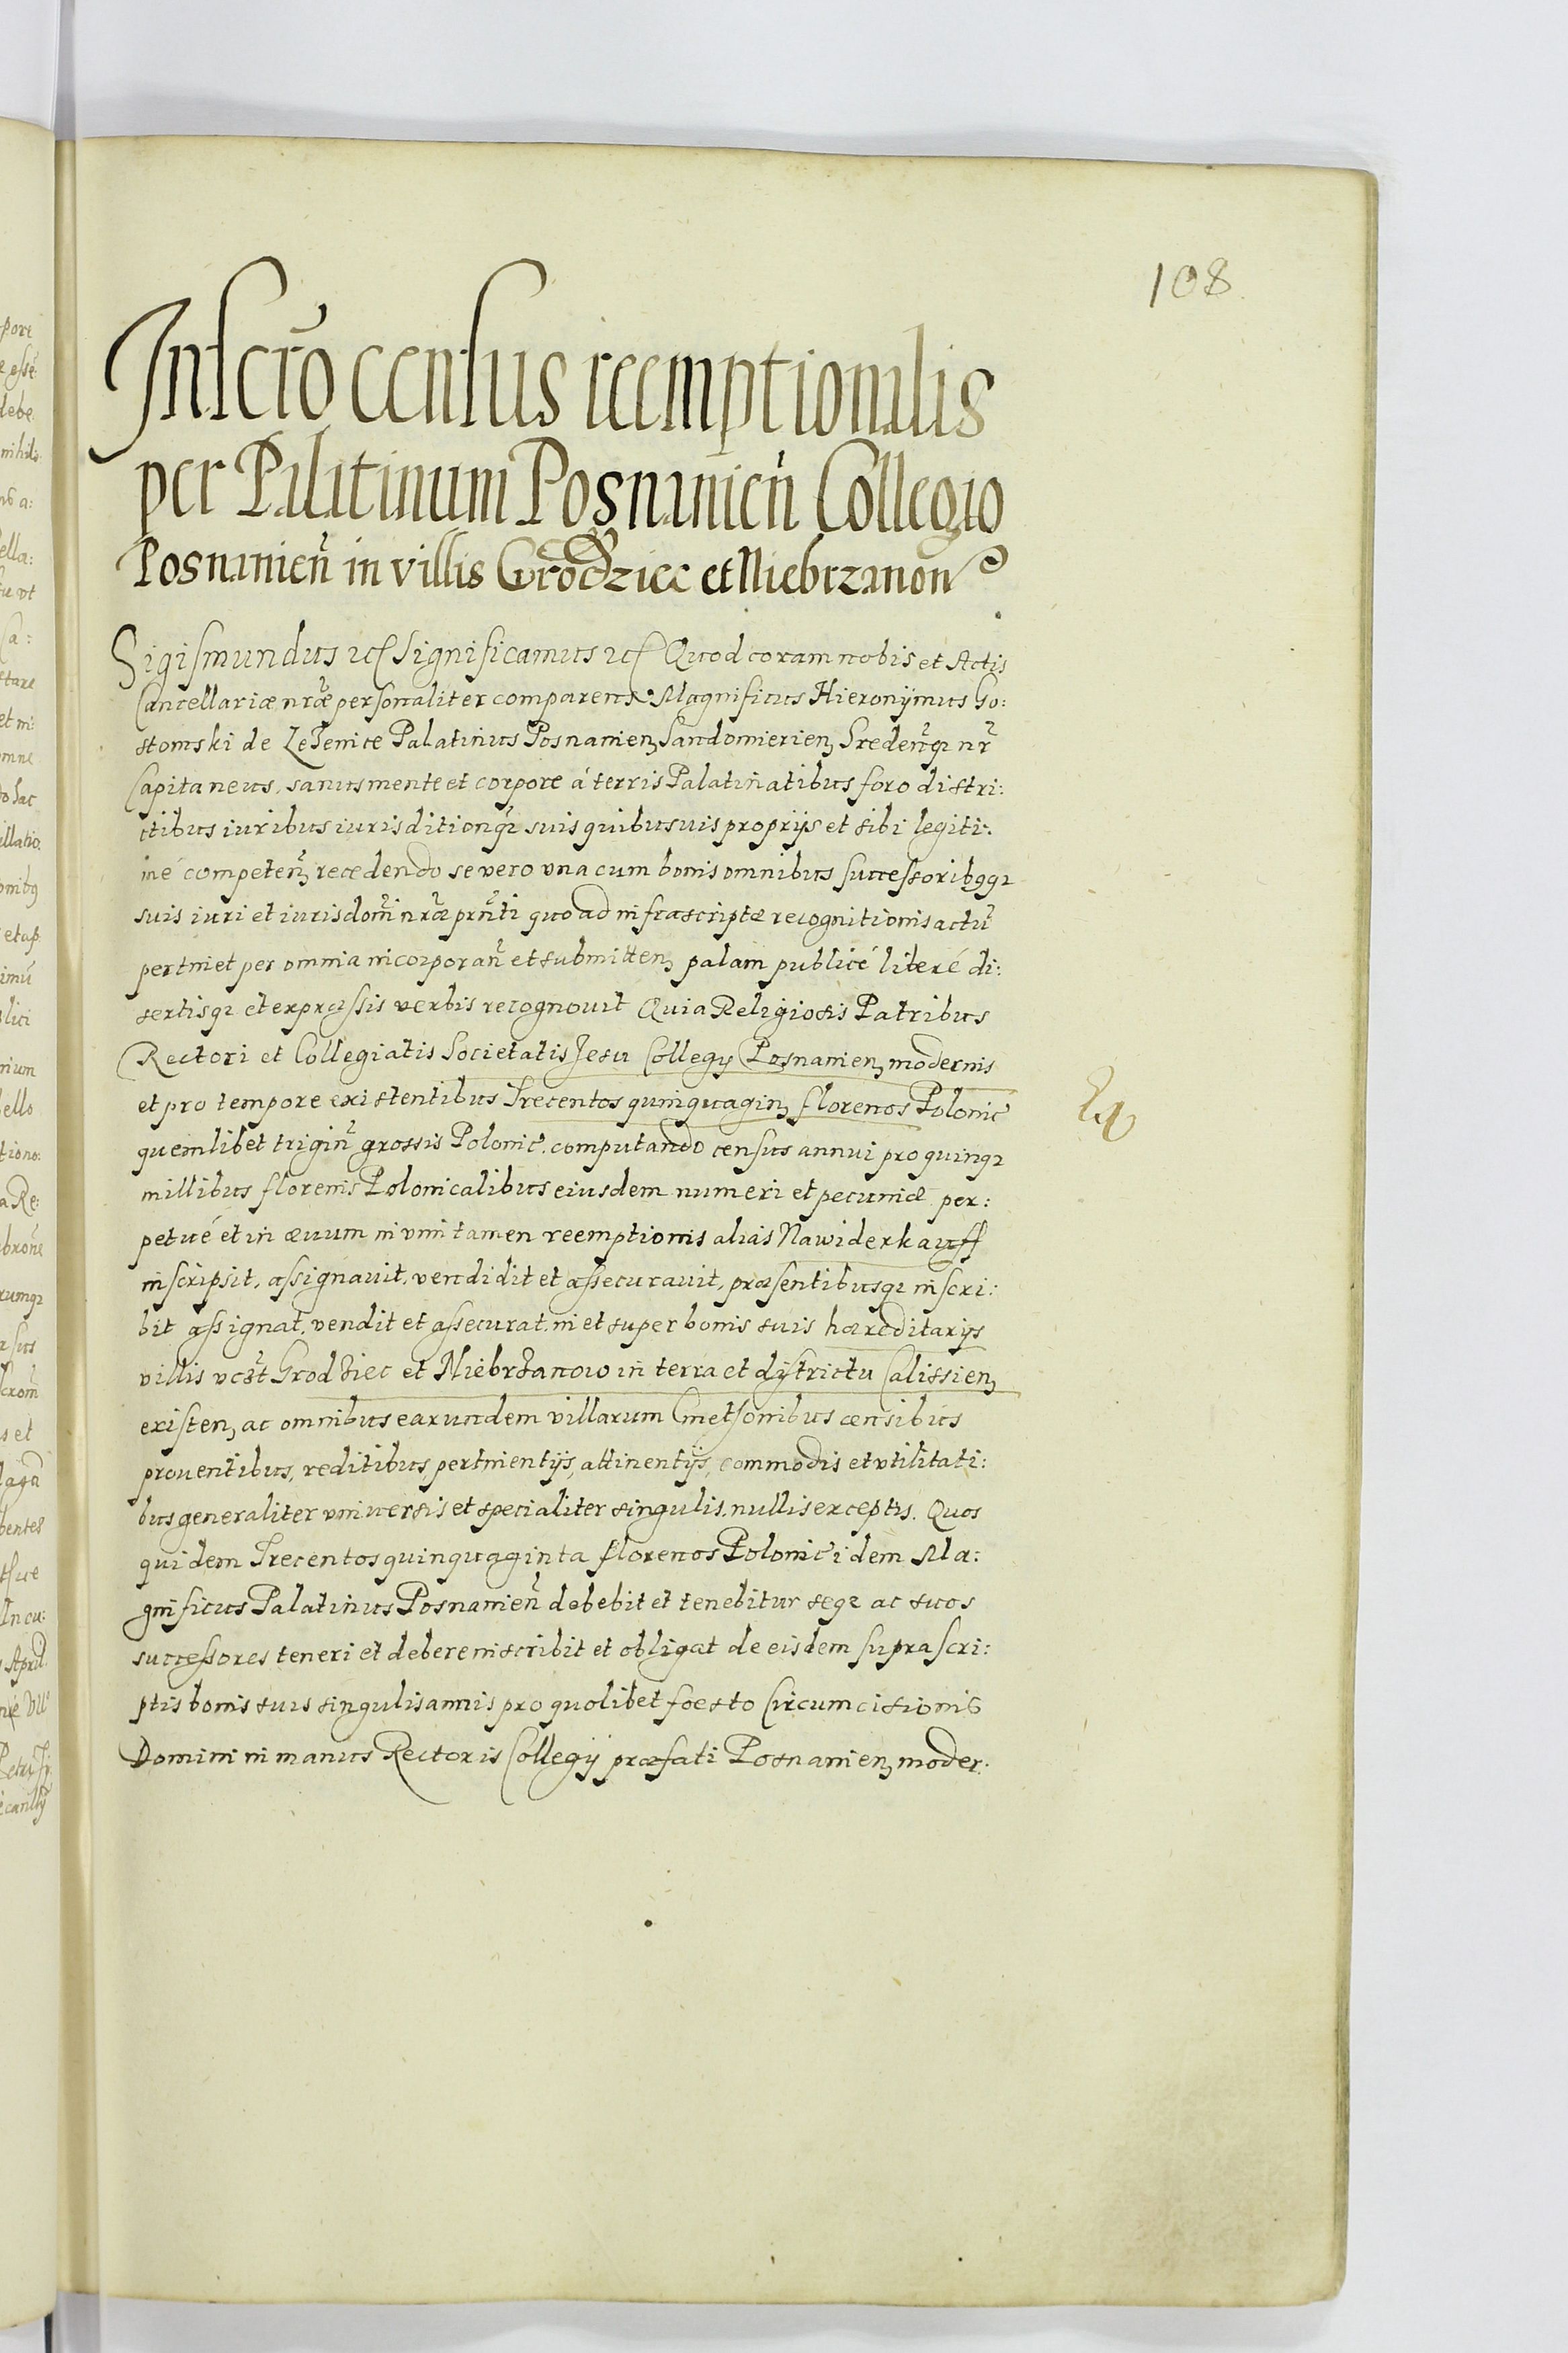 108
Inscr̃o census reemptionalis
per Palatinum Posnanień Collegio
Posnanień in villis Grodziec et Niebrzanow
Sigismundus etc Significamus etc Quod coram nobis et Actis
Cancellariæ nr̃æ personaliter comparens Magnificus Hieronijmus Go:
stomski de Lezenice Palatinus Posnanien, Sandomierien, Sredenq3 nr̃
Capitaneus, sanus mente et corpore á terris Palatinatibus foro distri:
ctibus iuribus iurisditionq3 suis quibusuis proprijs et sibi legiti:
mé competen, recedendo se vero vna cum bonis omnibus successoribq3
suis iuri et iurisdom̃ nr̃æ prñti quo ad infrascriptæ recognitionis actũ
pertinet per omnia incorporañ et submitten, palam publicé liberé di:
sertisq3 et expræssis verbis recognouit Quia Religiosis Patribus
Rectori et Collegiatis Societatis Jesu Collegij Posnanien, modernis
et pro tempore existentibus Trecentos quinquagin, florenos Polonic
quemlibet trigiñ grossis Polonic. computando census annui pro quinq3
millibus florenis Polonicalibus eiusdem numeri et pecuniæ per:
petué et in æuum in vim tamen reemptionis alias Nawiderkauff
inscripsit, assignauit, vendidit et assecurauit, præsentibusq3 inscri:
bit assignat, vendit et assecurat, in et super bonis suis hæreditarijs
villis vcz̃t Grodziec et Niebrzanow in terra et districtu Calissien,
existen, ac omnibus earundem villarum Cmetonibus censibus
prouentibus, reditibus, pertinentijs, attinentijs, commodis et vtilitati:
bus generaliter vniuersis et specialiter singulis, nullis exceptis. Quos
quidem Trecentos quinquaginta florenos Polonic idem Ma:
gnificus Palatinus Posnanień debebit et tenebitur seq3 ac suos
successores teneri et debere inscribit et obligat de eisdem suprascri:
ptis bonis suis singulis annis pro quolibet foesto Circumcisionis
Domini in manus Rectoris Collegij præfati Posnanien, moder.